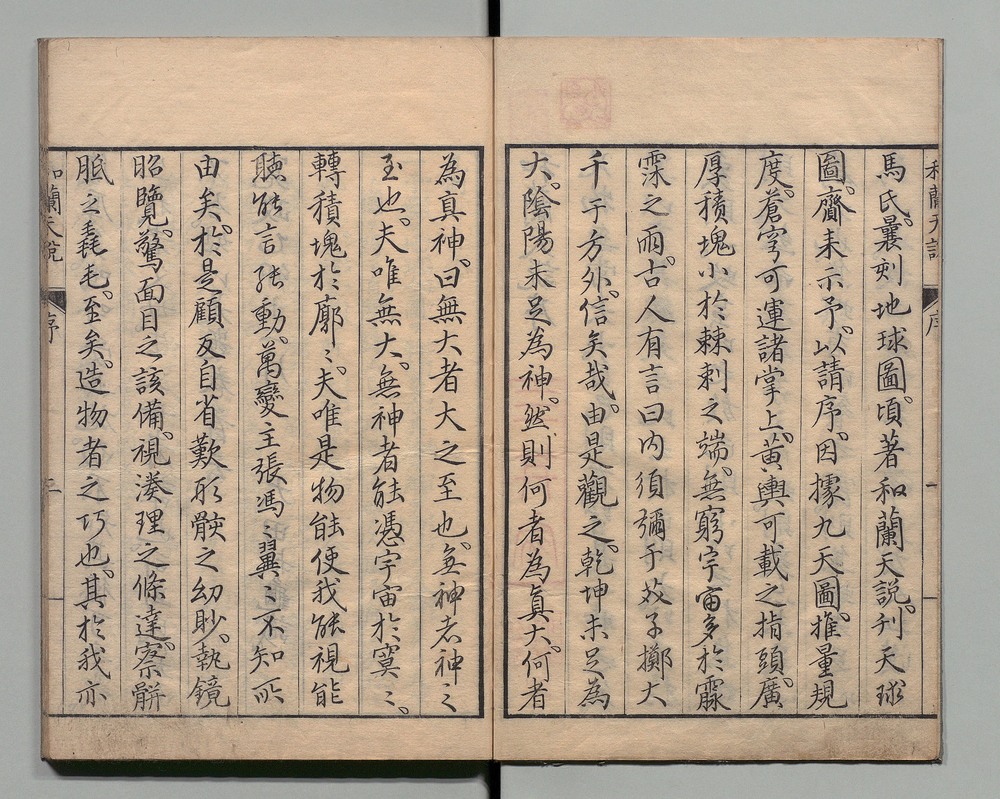 和蘭天説
序
一
馬氏。曩刻地球圖。頃著和蘭天説。刋天球
圖。齎来示予。以請序。因據九天圖。推量規
度。蒼穹可運諸掌上。黄輿可載之指頭。廣
厚積塊小於棘刺之端。無窮宇宙多於霢
霂之雨。古人有言曰内須彌于芥子擲大
千于方外。信矣哉。由是觀之。乾坤未足為
大。陰陽未足為神。然則何者為真大。何者
為真神。曰無大者大之至也。無神者神之
至也。夫唯無大。無神者能憑宇宙於寞〻。
轉積塊於廓〻。夫唯是物能使我能視能
聴能言能動。萬變主張馮〻翼〻不知所
由矣。於是顧反自省歎形骸之幼眇。執鏡
昭覽。驚面目之該備。視湊理之條達。察骿
胝之毳毛。至矣。造物者之巧也。其於我亦
和蘭天説
序
二